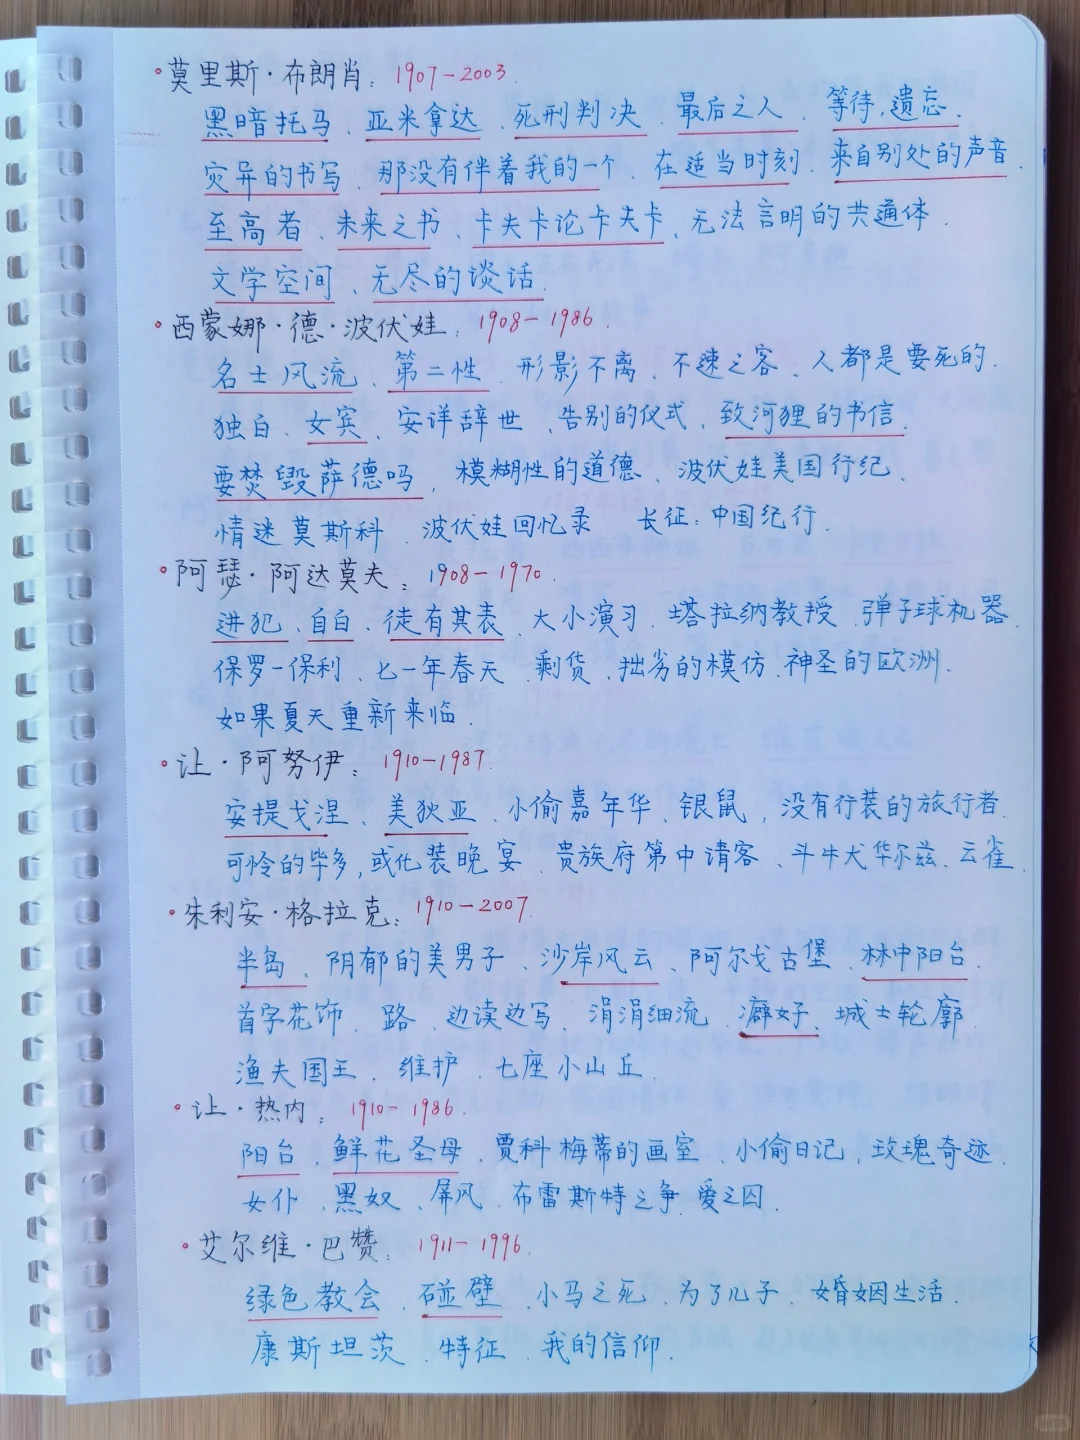 •莫里斯·布朗肖：1907-2003.
黑暗托马、亚米拿达、死刑判决、最后之人、等待,遗忘.
灾异的书写、那没有伴着我的一个、在适当时刻、来自别处的声音.
至高者、未来之书、卡夫卡论卡夫卡、无法言明的共通体.
文学空间、无尽的谈话.
•西蒙娜·德·波伏娃：1908-1986.
名士风流、第二性、形影不离、不速之客、人都是要死的.
独白、女宾、安详辞世、告别的仪式、致河狸的书信.
要焚毁萨德吗、模糊性的道德、波伏娃美国行纪.
情迷莫斯科、波伏娃回忆录 长征:中国纪行.
•阿瑟·阿达莫夫：1908-1970.
进犯、自白、徒有其表、大小演习、塔拉纳教授、弹子球机器.
保罗-保利、七一年春天、剩货、拙劣的模仿、神圣的欧洲.
如果夏天重新来临.
•让·阿努伊：1910-1987.
安提戈涅、美狄亚、小偷嘉年华、银鼠、没有行装的旅行者.
可怜的毕多,或化装晚宴、贵族府第中请客、斗牛犬华尔兹、云雀.
•朱利安·格拉克：1910-2007.
半岛、阴郁的美男子、沙岸风云、阿尔戈古堡、林中阳台.
首字花饰、路、边读边写、涓涓细流、癖好、城士轮廓.
渔夫国王、维护、七座小山丘.
•让·热内：1910-1986.
阳台、鲜花圣母、贾科梅蒂的画室、小偷日记、玫瑰奇迹.
女仆、黑奴、屏风、布雷斯特之争、爱之囚.
•艾尔维·巴赞：1911-1996.
绿色教会、碰壁、小马之死、为了儿子、婚姻生活.
康斯坦茨、特征、我的信仰.